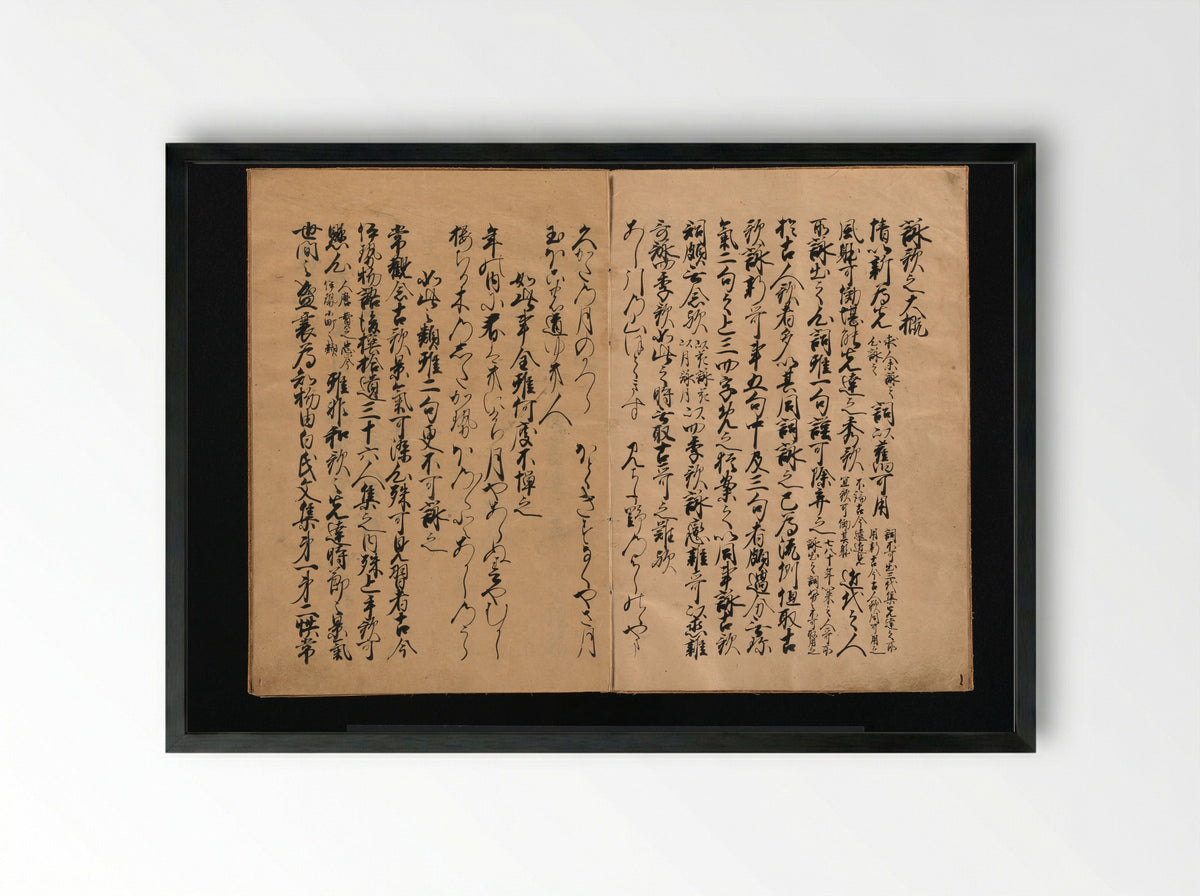 詠歌之大概
情以新為先 求人未詠之心詠之 詞以舊可用 詞不可出三代集先達之所用新古今古人歌同可用之
風躰可効堪能先達之秀歌 不論古今遠近見宜歌可効其躰 近代之人
所詠出之心詞雖一句謹可除弃之 七八十年以来之人哥所詠出之詞努々不可取用之
於古人歌者多以其同詞詠之已為流例但取古
歌詠新哥事五句中及三句者頗過分無珎
氣二句之上三四字免之猶案之以同事詠古歌
詞頗無念歟 以花詠花以月詠月 以四季歌詠戀雜哥以戀雜
哥詠四季歌如此之時無取古哥之難歟
あし引の山ほとゝきす みよし野のよしのゝやま
久かたの月のかつら ほとゝきすなくやさ月
玉ほこの道ゆき人
如此事全雖何度不憚之
年の内に春はきにけり 月やあらぬ春やむかし
桜ちる木のした風 ほの〳〵とあかしのうら
如此之類雖二句更不可詠之
常觀念古歌景氣可染心殊可見習者古今
伊勢物語後撰拾遺三十六人集之内殊上手歌可
懸心 人麿貫之忠岑伊勢小町等類 雖非和歌之先達時節之景氣
世間之盛衰為知物由白氏文集第一第二帙常